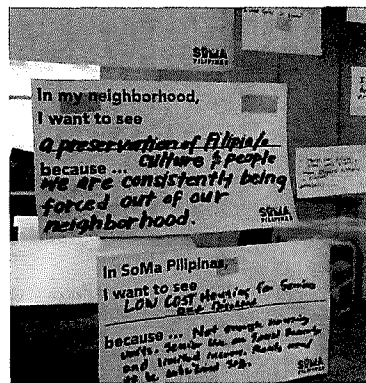 SOMA
PILIPINAS
In my neighborhood,
I want to see
a preservation of Filipin/a
Culture & people
because ...
we are consistently being
forced out of our
neighborhood.
SOMA
PILIPINAS
In SoMa Pilipinas,
I want to see
LOW COST Housing for Seniors
because ... Not enough housing
units. Senior live on Social Security
and limited income. Rents need
to be
SOMA
PILIPINAS